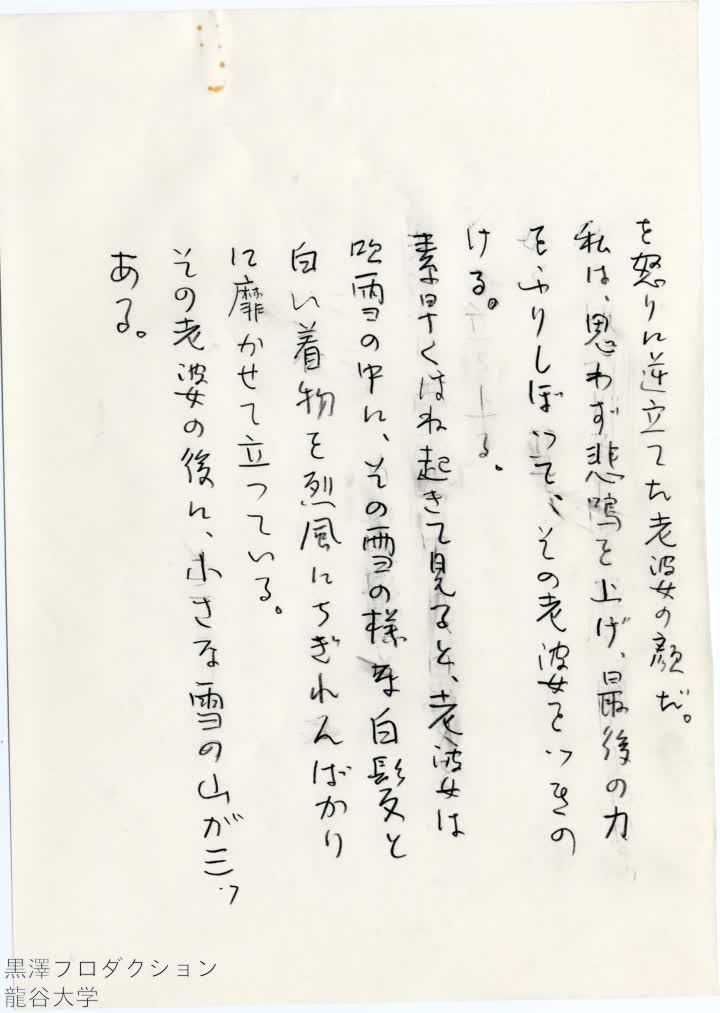 を怒りに逆立てた老婆の顔だ。
私は、思わず悲鳴を上げ、最後の力
をふりしぼって、その老婆をつきの
ける。
素早くはね起きて見ると、老婆は
吹雪の中に、その雪の様な白髪と
白い着物を烈風にちぎれんばかり
に靡かせて立っている。
その老婆の後に、小さな雪の山が三つ
ある。
黒澤プロダクション
龍谷大学